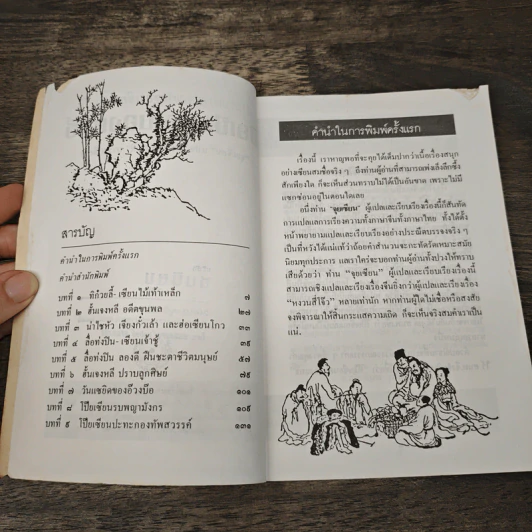 สารบัญ
คำนำในการพิมพ์ครั้งแรก
คำนำสำนักพิมพ์
บทที่ ๑ ทิก๋วยลี้-เซียนไม้เท้าเหล็ก ๗
บทที่ ๒ ฮั้นเจงหลี อดีตขุนพล ๒๑
บทที่ ๓ น่าไชหัว เจียงกั๋วเล้า และฮ่อเซียนโกว ๓๑
บทที่ ๔ ลื่อท่งปิน-เซียนเจ้าชู้ ๓๙
บทที่ ๕ ลื่อท่งปิน ลองดี ฝืนชะตาชีวิตมนุษย์ ๕๗
บทที่ ๖ ฮั้นเจงหลี ปราบลูกศิษย์ ๗๙
บทที่ ๗ วันแซยิดของอ๊วงบ๊อ
บทที่ ๘ โป๊ยเซียนรบพญามังกร ๑๐๙
บทที่ ๙ โป๊ยเซียนปะทะกองทัพสวรรค์ ๑๓๑
คำนำในการพิมพ์ครั้งแรก
เรื่องนี้ เราหาญพอที่จะคุยได้เต็มปากว่าเนื้อเรื่องสนุก
อย่างเซียนสมชื่อจริง ๆ ถึงท่านผู้อ่านที่สามารถเพ่งเล็งลึกซึ้ง
สักเพียงใด ก็จะเห็นส่วนทราบไม่ได้เป็นอันขาด เพราะไม่มี
แซกซ่อนอยู่ในตอนใดเลย
อนึ่งท่าน "จุยเซียน" ผู้แปลและเรียบเรียงเรื่องนี้ก็สันทัด
การแปลและการเรียงความทั้งภาษาจีนทั้งภาษาไทย ทั้งได้ตั้ง
หน้าพยายามแปลและเรียบเรียงเรื่องอย่างประณีตบรรจงจริง ๆ
เป็นที่หวังได้แน่แท้ว่าถ้อยคำสำนวนจะกะทัดรัดเหมาะสมัย
นิยมทุกประการ และเราใคร่จะบอกท่านผู้อ่านทั้งปวงให้ทราบ
เสียด้วยว่า ท่าน "จุยเซียน" ผู้แปลและเรียบเรียงเรื่องนี้
สามารถเชิงแปลและเรียงเรื่องจีนยิ่งกว่าผู้แปลและเรียงเรื่อง
"หงวนสี่โจ๊ว" หลายเท่านัก หากท่านผู้ใดไม่เชื่อหรือสงสัย
จงพิจารณาให้สิ้นกระแสความเถิด ก็จะเห็นจริงสมคำเราเป็น
แน่.